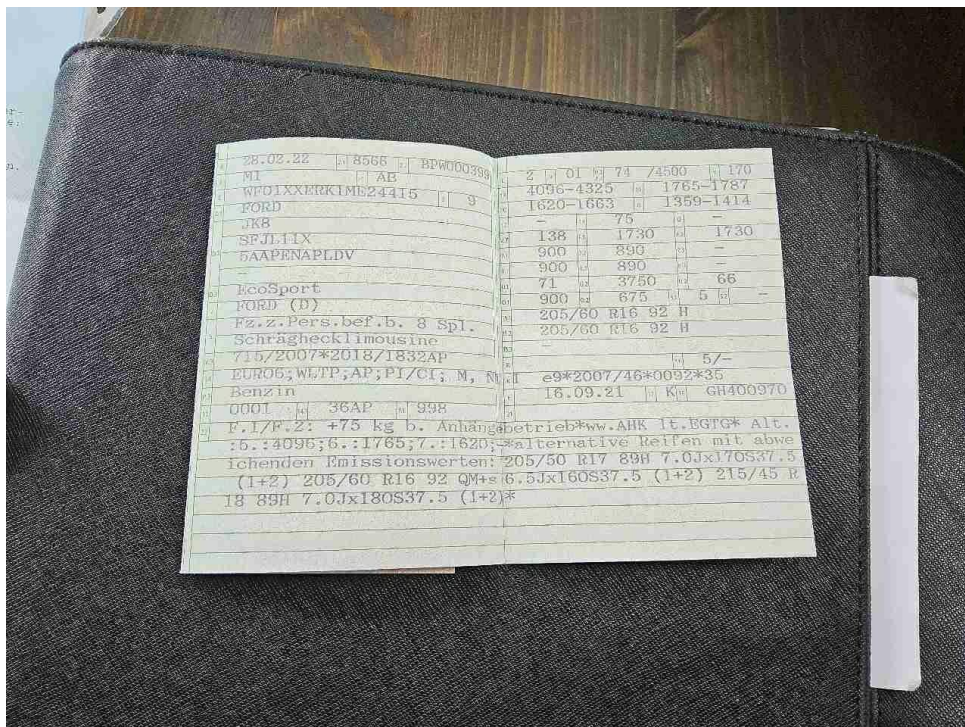 28.02.22 8566 BPW000399
M1 AB
WF01XXERK1ME24415 9
FORD
JK8
SFJL11X
5AAPENAPLDV
-
EcoSport
FORD (D)
Fz.z.Pers.bef.b. 8 Spl.
Schräghecklimousine
715/2007*2018/1832AP
EURO6;WLTP;AP;PI/CI; M, N1 I
Benzin
0001 36AP 998
2 01 74 /4500 170
4096-4325 1765-1787
1620-1663 1359-1414
- 75 -
138 1730 1730
900 890 -
900 890 -
71 3750 66
900 675 5 -
205/60 R16 92 H
205/60 R16 92 H
-
5/-
e9*2007/46*0092*35
16.09.21 K GH400970
F.1/F.2: +75 kg b. Anhängebetrieb*ww.AHK lt.EGTG* Alt.
:5.:4096;6.:1765;7.:1620;-*alternative Reifen mit abwe
ichenden Emissionswerten: 205/50 R17 89H 7.0Jx17OS37.5
(1+2) 205/60 R16 92 QM+S 6.5Jx16OS37.5 (1+2) 215/45 R
18 89H 7.0Jx18OS37.5 (1+2)*